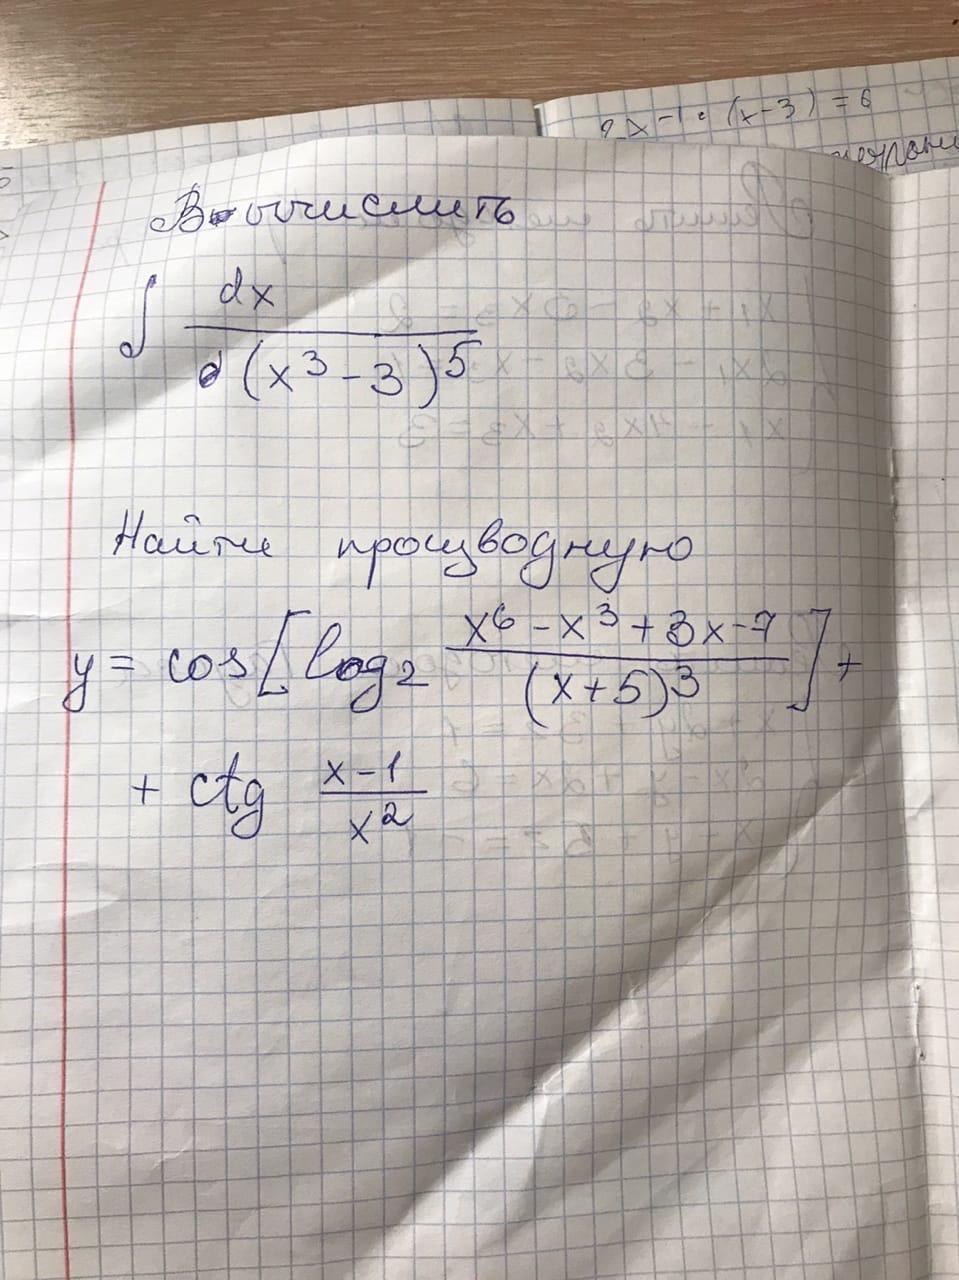 2x-1·(x-3)=6
Вычислить
∫ dx
d(x³-3)⁵
Найти производную
y = cos[log₂ x⁶-x³+3x-7 / (x+5)³] +
+ ctg x-1 / x²